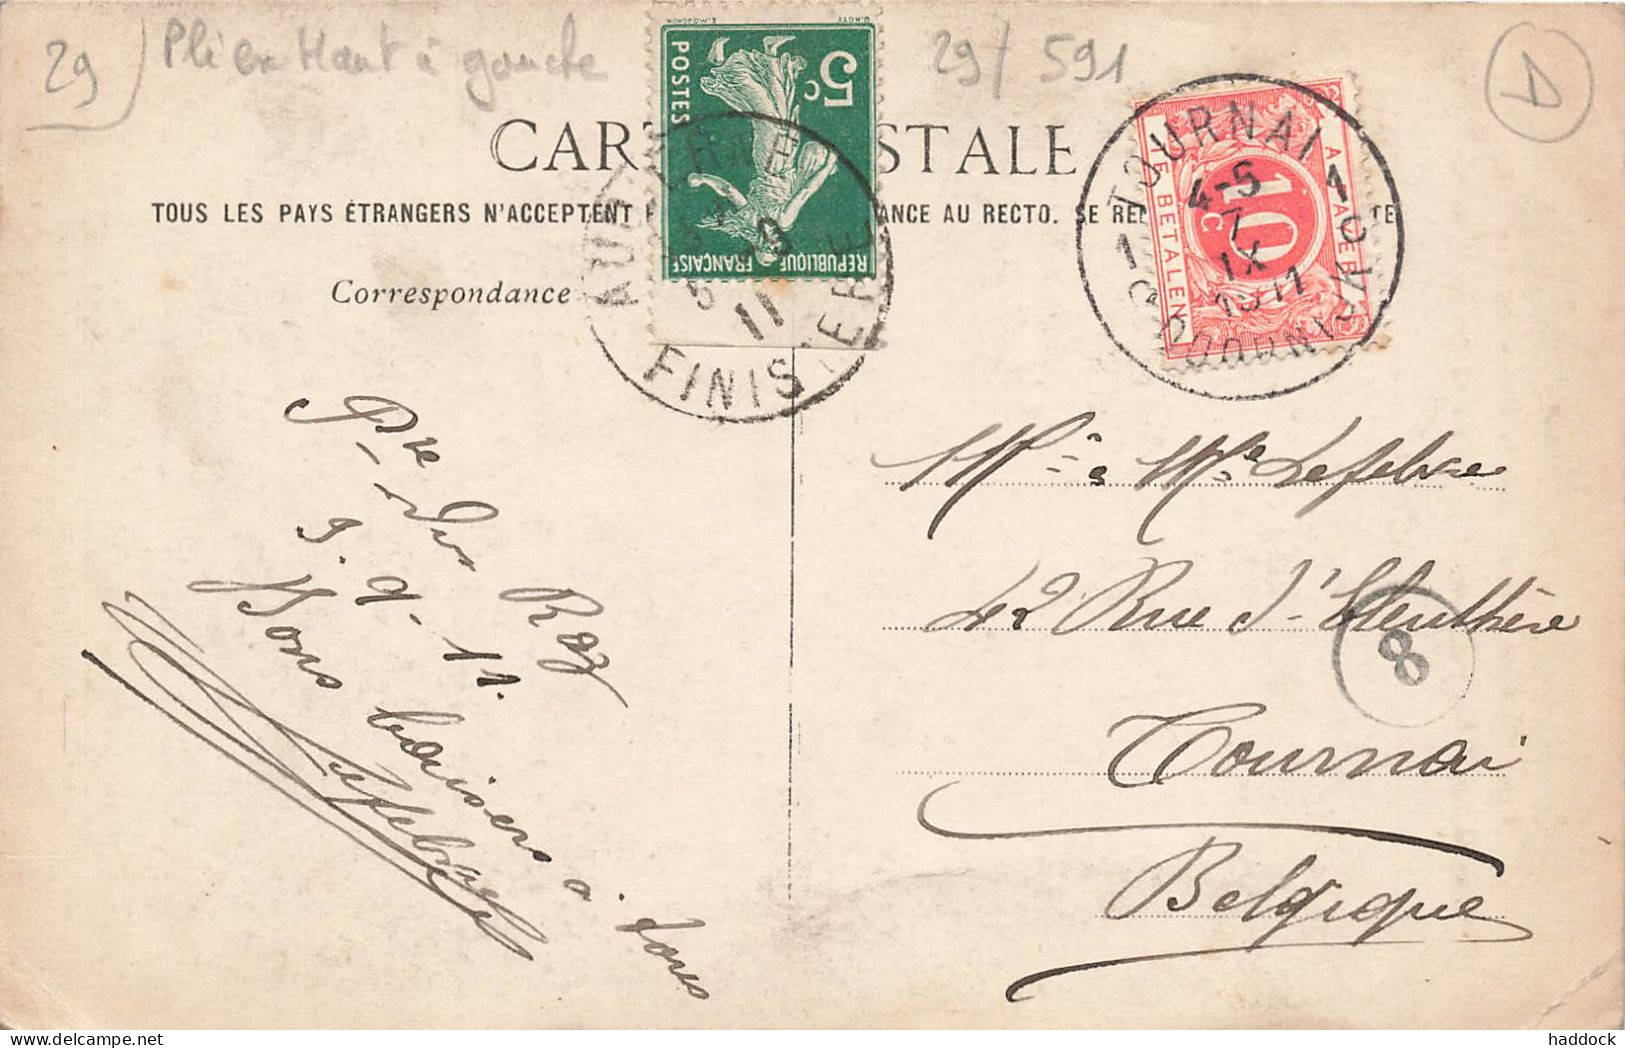 29
Pli en Haut à gauche
29/591
D
E. MOUCHON
O. ROTY
5c
POSTES
REPUBLIQUE FRANÇAISE
CARTE POSTALE
TOUS LES PAYS ÉTRANGERS N'ACCEPTENT P
ANCE AU RECTO. SE RE
TE
Correspondance
AUDIERNE
5 9
11
FINISTERE
TOURNAI
1 4-5 1
7
IX
1911
DOORNIJK
A PAYER
TE BETALEN
10 c
Pte du Raz
5. 9. 11.
Bons baisers à tous
Lefebvre
Mr & Me Lefebvre
42 Rue St. Eleuthère
8
Tournai
Belgique
haddock